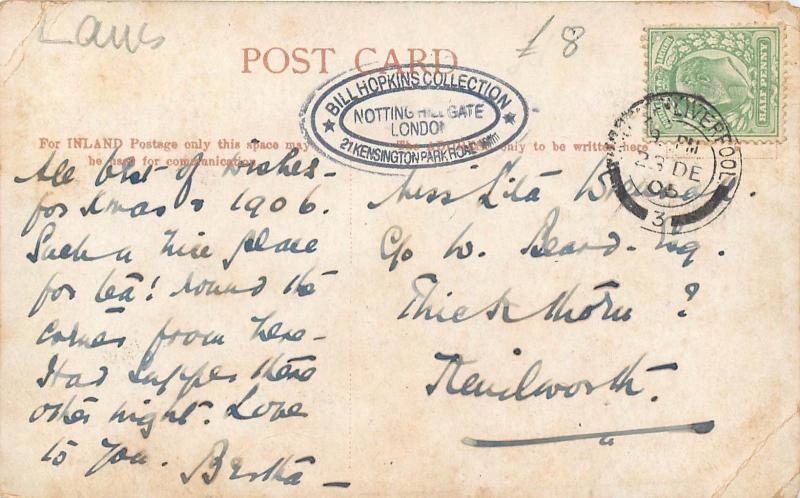 Laws
£8
POST CARD
BILL HOPKINS COLLECTION
NOTTING HILL GATE
LONDON
21 KENSINGTON PARK ROAD W11
For INLAND Postage only this space may
be used for communication
only to be written here
HALF PENNY
LIVERPOOL
PM
23 DE
05
3
All best of wishes
for Xmas & 1906.
Such a nice place
for tea! round the
corner from here –
Had supper there
other night. Love
to you. Bertha –
Miss Lita
c/o W. Beard. Esq.
Thickthorn ?
Kenilworth.